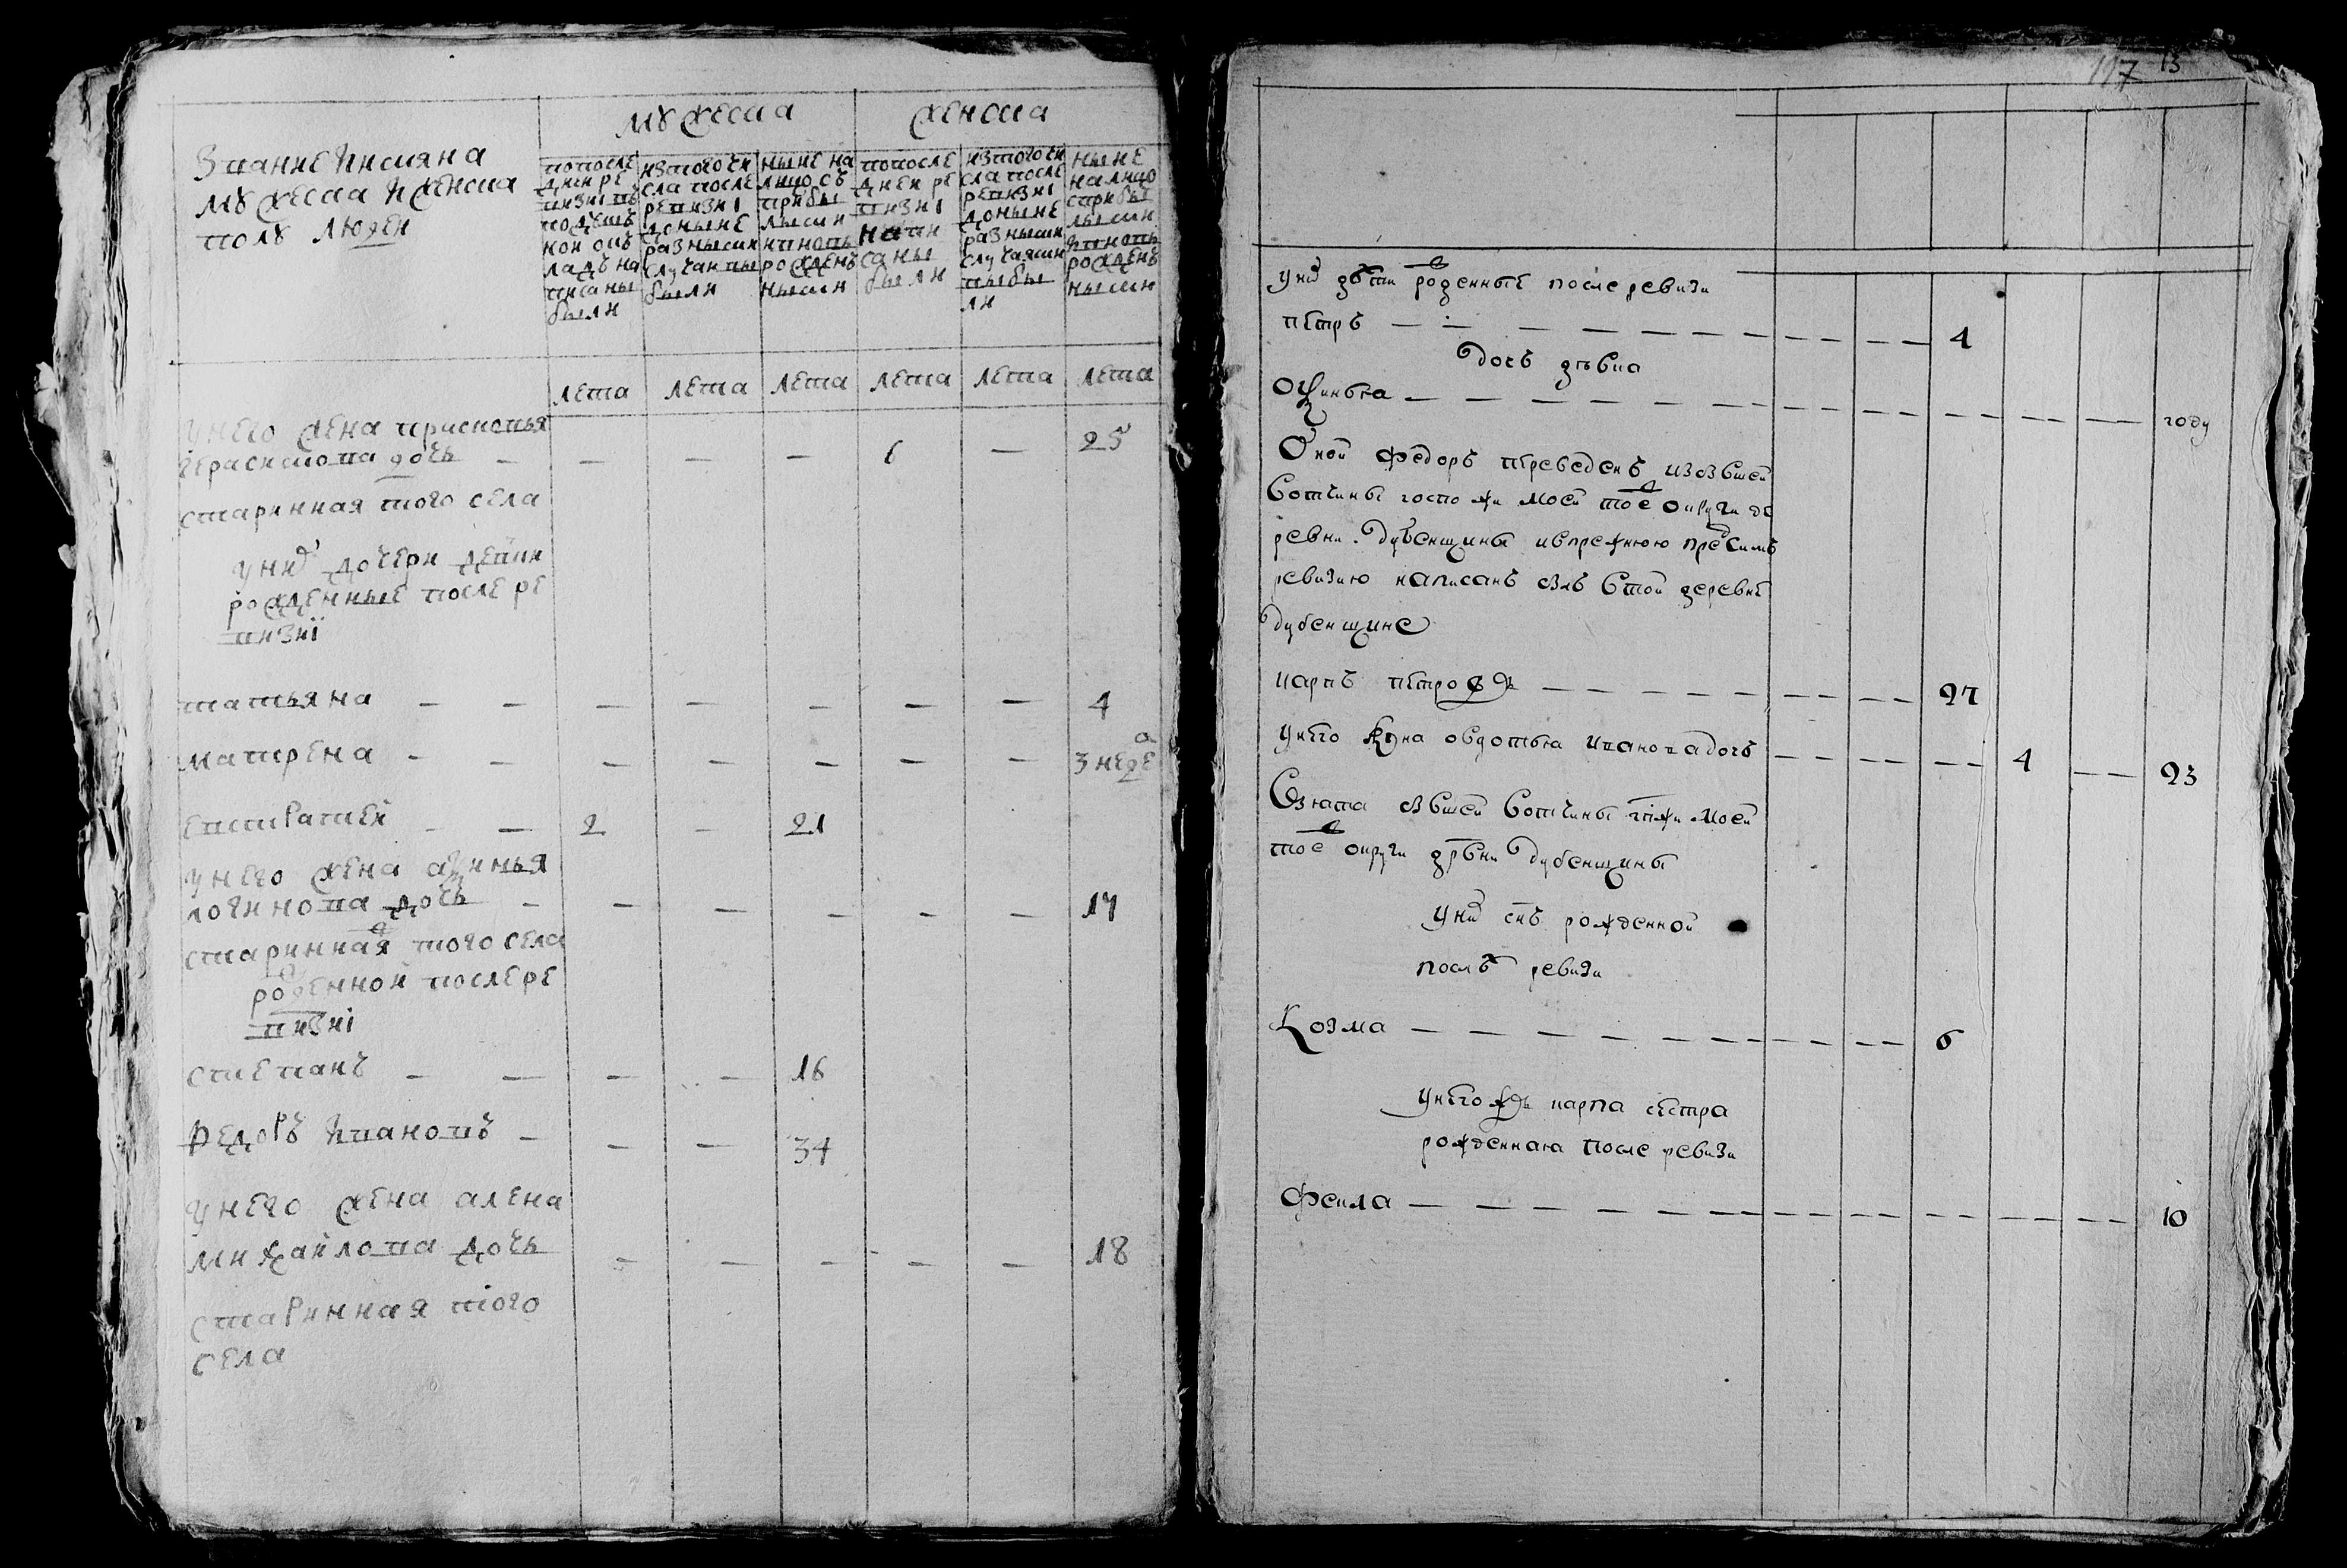 мужеска
женска
Звание И имяна
мужеска И женска
полу людей
по после
дней ре
визиї въ
подуш
ной окъ
ладъ на
писаны
были
Изъ того чи
сла после
ревизиї
до ныне
разными
случаи вы
были
ныне на
лицо съ
прибы
лыми
и вновь
рожден
ными
по после
дней ре
визиї
напи
саны
были
из того чи
сла после
ревизиї
до ныне
разными
случаями
выбы
ли
ныне
на лицо
с прибы
лыми
и вновь
рожден
ными
лета лета лета лета лета лета
у него жена присковья
герасимова дочь 6 25
старинная того села
у них дочери дети
рожденные после ре
визиї
татьяна 4
матрена 3 неде
Евстратей 2 21
у него жена аксинья
логинова дочь 17
старинная того села
роденной после ре
визиї
степанъ 16
Федоръ Ивановъ 34
у него жена алена
михайлова дочь 18
старинная того
села
117 13
у них дѣти роденные после ревизи
петръ 4
дочь дѣвка
Оксинья году
Оной федоръ переведенъ из
вотчины госпожи моей тое округи де
ревни Дубенщины и в прежнюю пред симъ
ревизию написанъ былъ в той деревне
Дубенщине
карпъ петровъ 27
у него жена овдотья иванова дочь 4 23
Взята вотчины гпжи моей
тое округи дрвни Дубенщины
у них снъ рожденной
послѣ ревизи
Козма 6
у него ж карпа сестра
рожденная после ревизи
Фекла 10